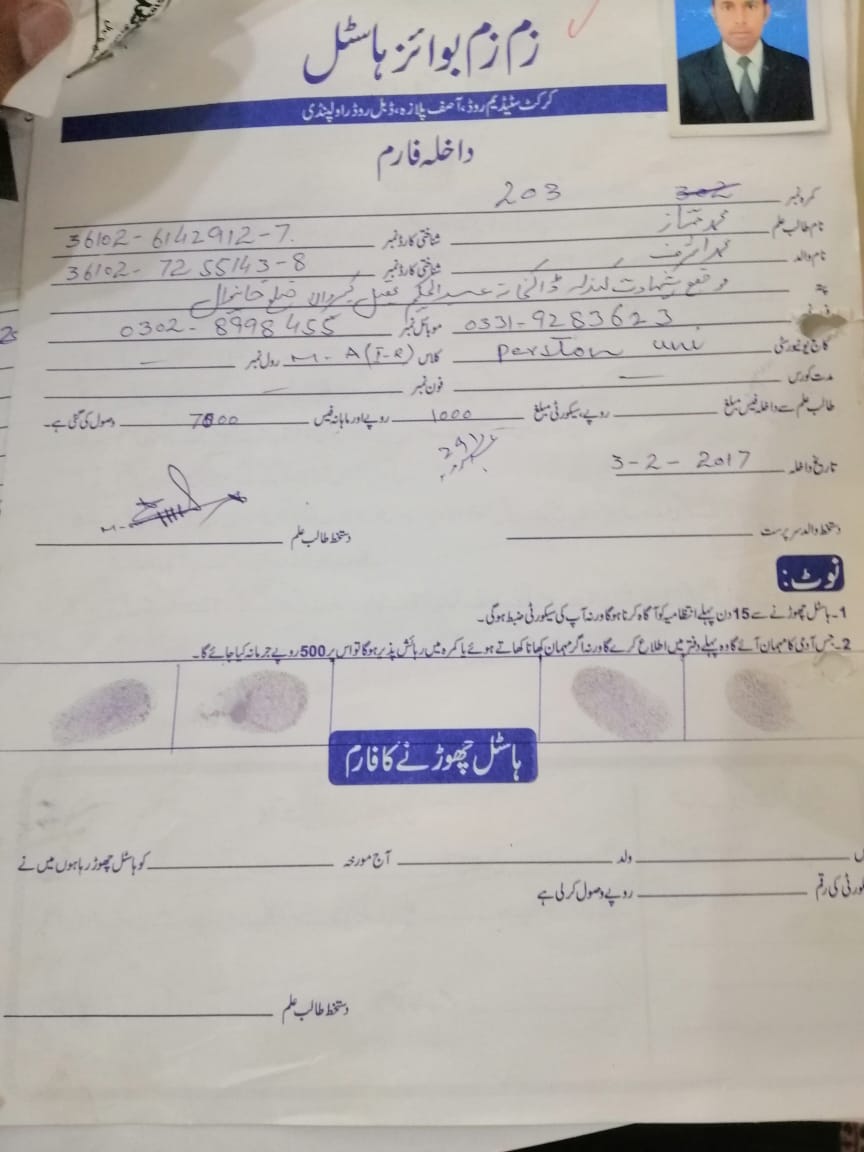 زم زم بوائز ہاسٹل
کرکٹ سٹیڈیم روڈ، آصف پلازہ، ڈبل روڈ راولپنڈی
داخلہ فارم
کمرہ نمبر 302 203
نام طالب علم محمد ممتاز شناختی کارڈ نمبر 36102-6142912-7
نام والد محمد اشرف شناختی کارڈ نمبر 36102-7255143-8
پتہ موضع شہادت ڈاکخانہ عبدالحکیم ضلع خانیوال
0331-9283623 موبائل نمبر 0302-8998455
کالج یونیورسٹی Perston uni کلاس M-A (I-R) رول نمبر
مدت کورس فون نمبر
طالب علم سے داخلہ فیس مبلغ روپے، سیکورٹی مبلغ 1000 روپے اور ماہانہ فیس 7000 وصول کی گئی ہے۔
تاریخ داخلہ 3-2-2017
دستخط والد سرپرست دستخط طالب علم
نوٹ:
1۔ ہاسٹل چھوڑنے سے 15 دن پہلے انتظامیہ کو آگاہ کرنا ہوگا ورنہ آپ کی سیکورٹی ضبط ہوگی۔
2۔ جس آدمی کا مہمان آئے گا وہ پہلے دفتر میں اطلاع کرے گا ورنہ اگر مہمان کھانا کھاتے ہوئے یا کمرہ میں رہائش پذیر ہوگا تو اس پر 500 روپے جرمانہ کیا جائے گا۔
ہاسٹل چھوڑنے کا فارم
ولد آج مورخہ کو ہاسٹل چھوڑ رہا ہوں میں نے
کی رقم روپے وصول کر لی ہے
دستخط طالب علم